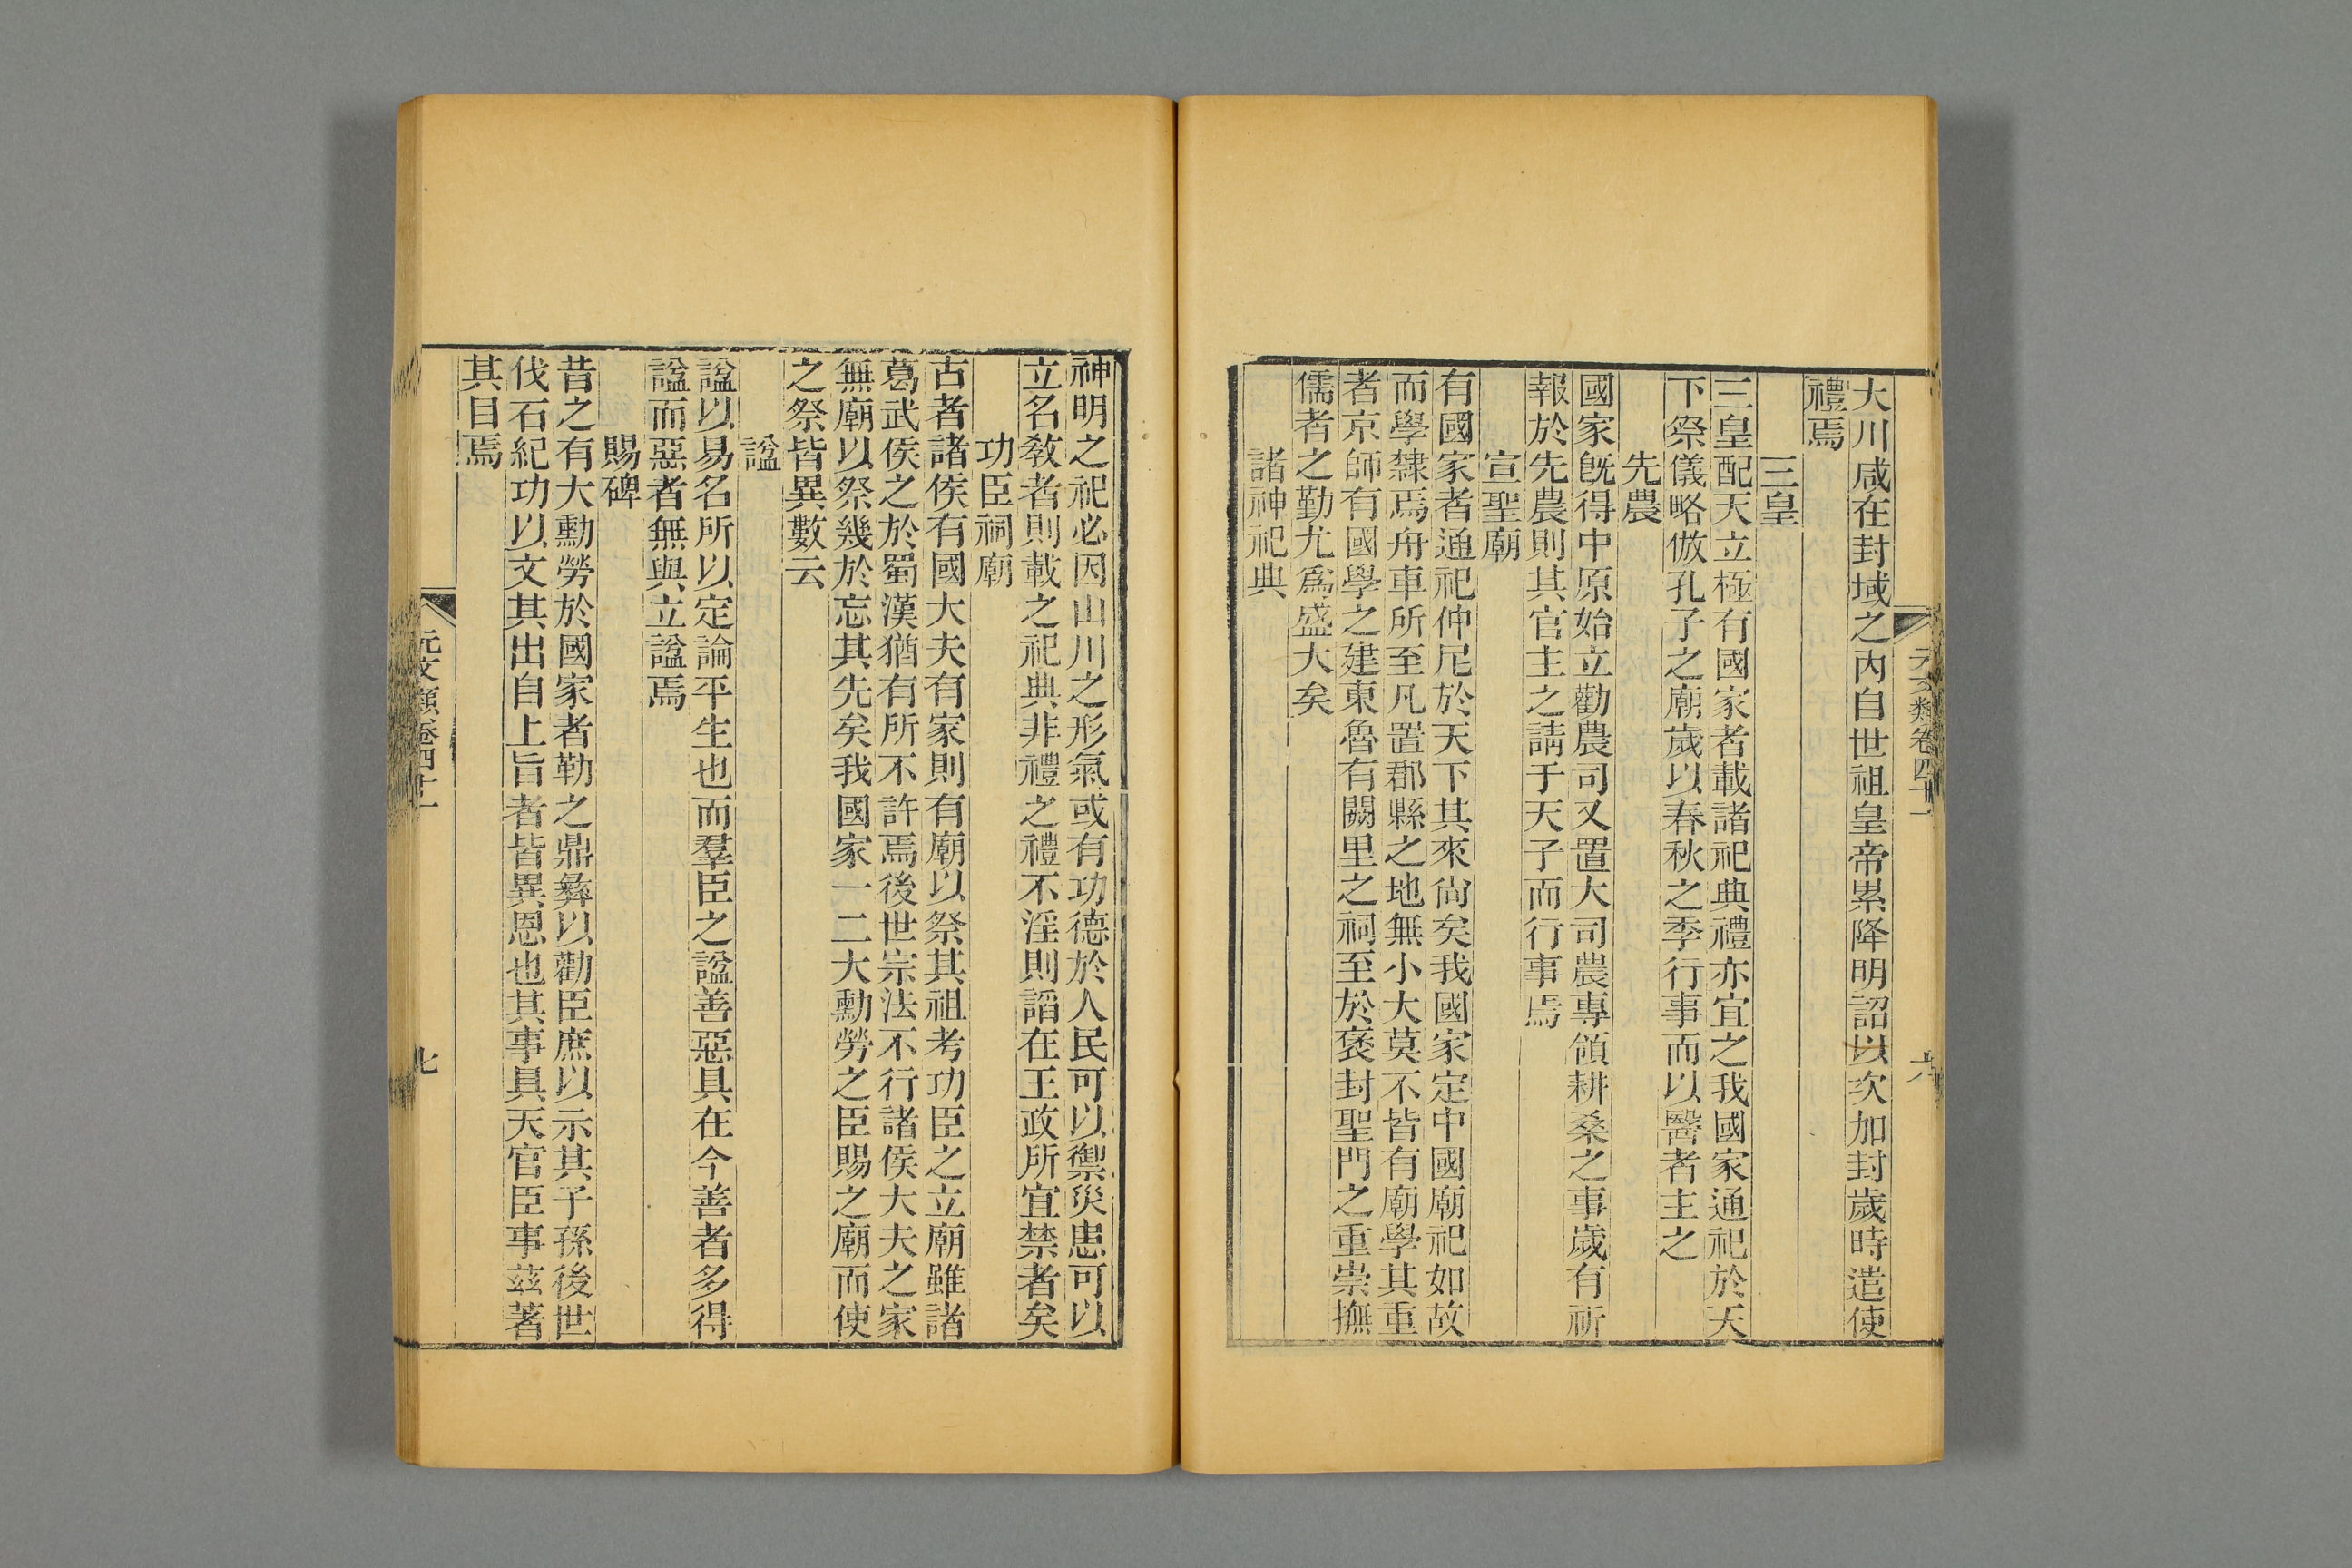 大川咸在封域之內自世祖皇帝累降明詔以次加封歲時遣使
禮焉
三皇
三皇配天立極有國家者載諸祀典禮亦宜之我國家通祀於天
下祭儀略倣孔子之廟歲以春秋之季行事而以醫者主之
先農
國家旣得中原始立勸農司又置大司農專領耕桑之事歲有祈
報於先農則其官主之請于天子而行事焉
宣聖廟
有國家者通祀仲尼於天下其來尙矣我國家定中國廟祀如故
而學隸焉舟車所至凡置郡縣之地無小大莫不皆有廟學其重
者京師有國學之建東魯有闕里之祠至於褒封聖門之重崇撫
儒者之勤尤爲盛大矣
諸神祀典
神明之祀必因山川之形氣或有功德於人民可以禦災患可以
立名敎者則載之祀典非禮之禮不淫則謟在王政所宜禁者矣
功臣祠廟
古者諸侯有國大夫有家則有廟以祭其祖考功臣之立廟雖諸
葛武侯之於蜀漢猶有所不許焉後世宗法不行諸侯大夫之家
無廟以祭幾於忘其先矣我國家一二大勳勞之臣賜之廟而使
之祭皆異數云
諡
諡以易名所以定論平生也而羣臣之諡善惡具在今善者多得
諡而惡者無與立諡焉
賜碑
昔之有大勳勞於國家者勒之鼎彝以勸臣庶以示其子孫後世
伐石紀功以文其出自上旨者皆異恩也其事具天官臣事茲著
其目焉
元文類卷四十一
六
元文類卷四十一
七